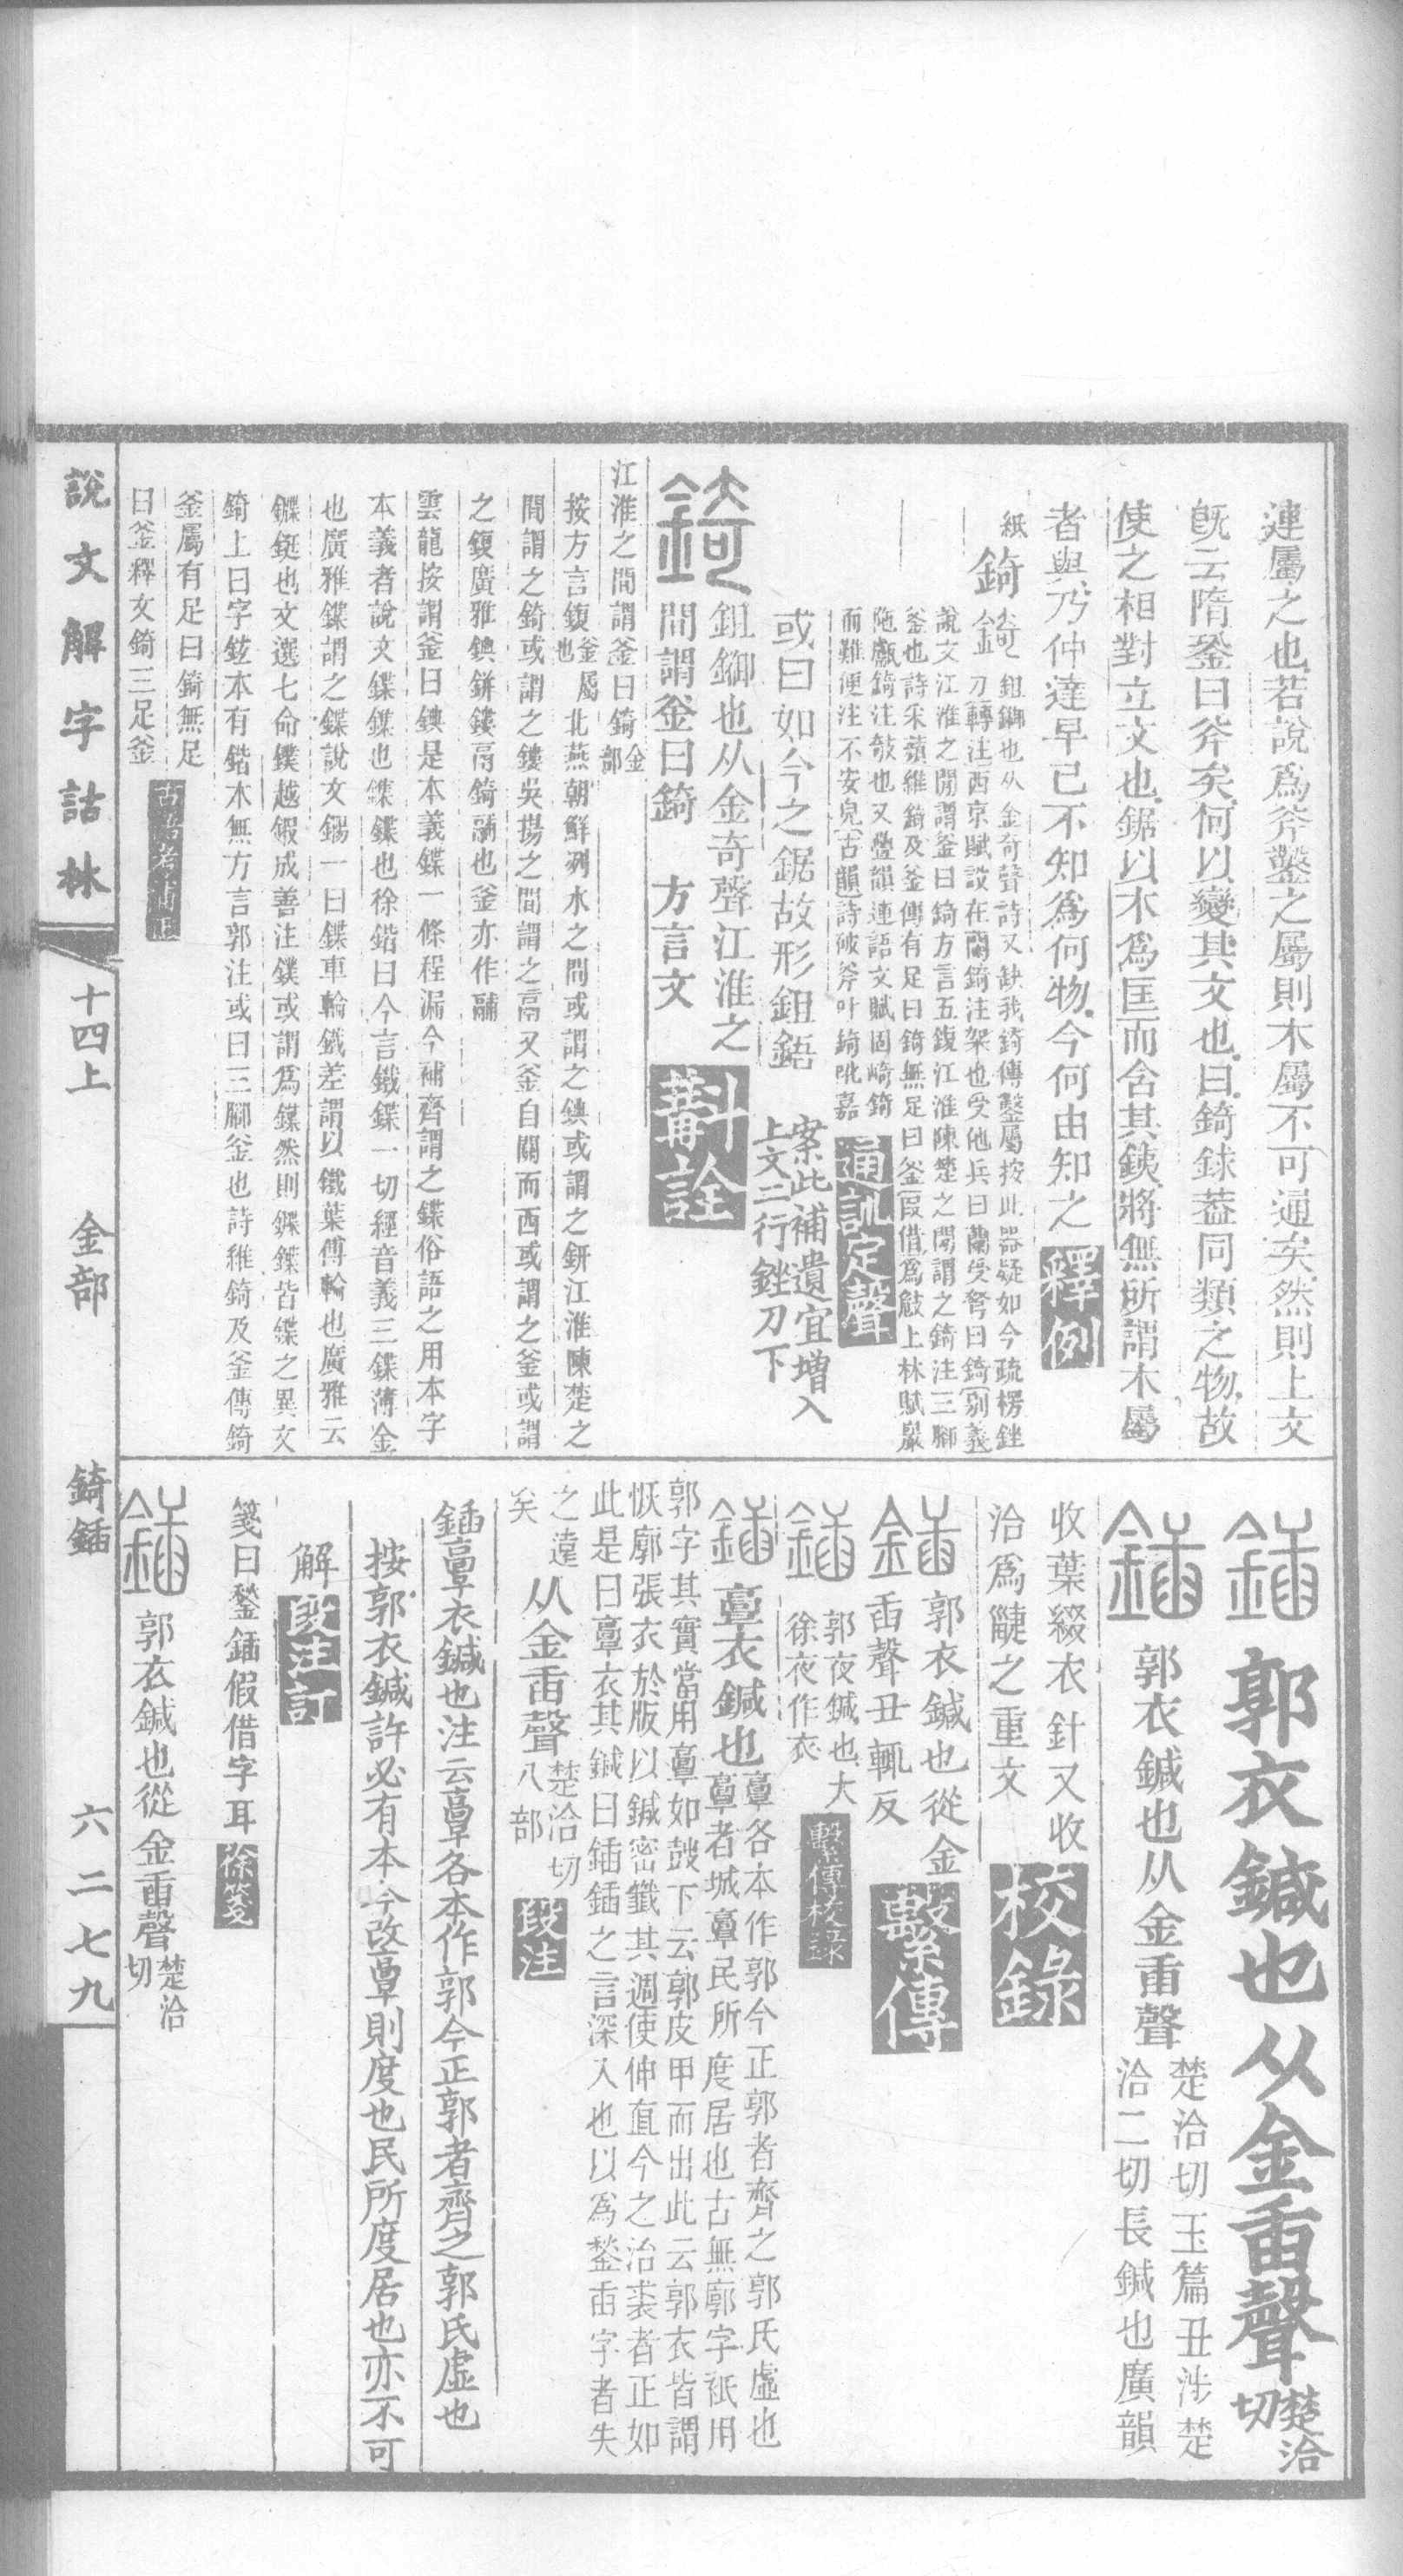 連屬之也若說爲斧鑿之屬則木屬不可通矣然則上文
旣云隋銎曰斧矣何以變其文也曰錡銶葢同類之物故
使之相對立文也鋸以木爲匡而含其鋏將無所謂木屬
者與乃仲達早已不知爲何物今何由知之 釋例
紙 錡
錡 鉏鋤也从金奇聲詩又缺我錡傳鑿屬按此器疑如今疏楞銼
刀轉注西京賦設在蘭錡注架也受他兵曰蘭受弩曰錡別義
說文江淮之閒謂釜曰錡方言五鍑江淮陳楚之閒謂之錡注三腳
釜也詩采蘋維錡及釜傳有足曰錡無足曰釜叚借爲攲上林賦巖
陁甗錡注攲也又疊韻連語文賦固崎錡
而難便注不安皃古韻詩破斧叶錡吪嘉 通訓定聲
或曰如今之鋸故形鉏鋙 案此補遺宜增入
上文二行銼刀下
錡 鉏鋤也从金奇聲江淮之
間謂釜曰錡 方言文 斠詮
江淮之間謂釜曰錡金部
按方言鍑釜屬也北燕朝鮮洌水之間或謂之錪或謂之鉼江淮陳楚之
間謂之錡或謂之鏤吳揚之間謂之鬲又釜自關而西或謂之釜或謂
之鍑廣雅錪鉼鏤鬲錡鬴也釜亦作鬴
雲龍按謂釜曰錪是本義鍱一條程漏今補齊謂之鍱俗語之用本字
本義者說文鍱鏶也鏶鍱也徐鍇曰今言鐵鍱一切經音義三鍱薄金
也廣雅鍱謂之鏶說文鐊一曰鍱車輪鐵差謂以鐵葉傅輪也廣雅云
鏶鋌也文選七命鏷越鍛成善注鏷或謂爲鏶然則鏶鏶皆鍱之異文
錡上曰字鉉本有鍇木無方言郭注或曰三腳釜也詩維錡及釜傳錡
釜屬有足曰錡無足
曰釜釋文錡三足釜 古語考補正
鍤 郭衣鍼也从金臿聲 楚洽切
鍤 郭衣鍼也从金臿聲 楚洽切玉篇丑涉楚
洽二切長鍼也廣韻
收葉綴衣針又收
洽爲𨧫之重文 校錄
鍤 郭衣鍼也從金
臿聲丑輒反 繫傳
鍤 郭夜鍼也大
徐夜作衣 繫傳校錄
鍤 𩫏衣鍼也 𩫏各本作郭今正郭者齊之郭氏虛也
𩫏者城𩫏民所度居也古無廓字衹用
郭字其實當用𩫏如鼓下云郭皮甲而出此云郭衣皆謂
恢廓張衣於版以鍼密籤其週使伸直今之治裘者正如
此是曰𩫏衣其鍼曰鍤鍤之言深入也以爲鍫臿字者失
之遠
矣 从金臿聲 楚洽切
八部 段注
鍤𩫏衣鍼也注云𩫏各本作郭今正郭者齊之郭氏虛也
按郭衣鍼許必有本今改𩫏則度也民所度居也亦不可
解 段注訂
箋曰鍫鍤假借字耳 徐箋
鍤 郭衣鍼也從金臿聲 楚洽切
說文解字詁林 十四上 金部 錡鍤 六二七九